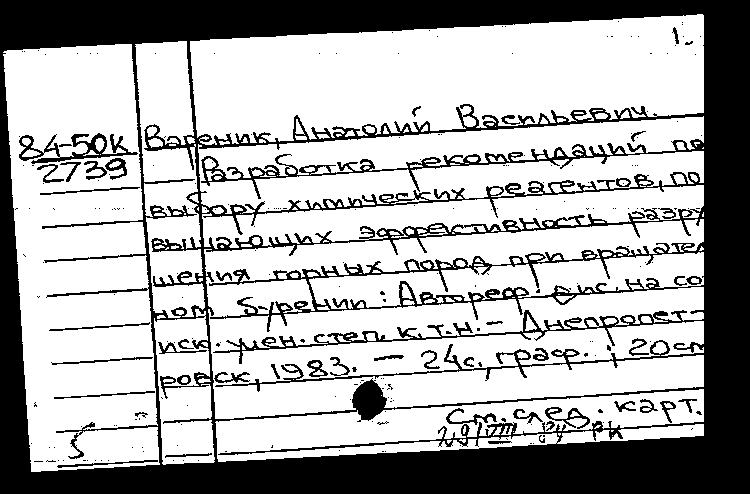 1.
84-50к Вареник, Анатолий Васильевич.
2739 Разработка рекомендаций по
выбору химических реагентов, по
вышающих эффективность разру
шения горных пород при вращател
ном бурении: Автореф. дис. на со
иск. учен. степ. к.т.н. – Днепропет-
ровск, 1983. – 24с., граф. ; 20см
См. след. карт.
5
29/VIII 84 РК